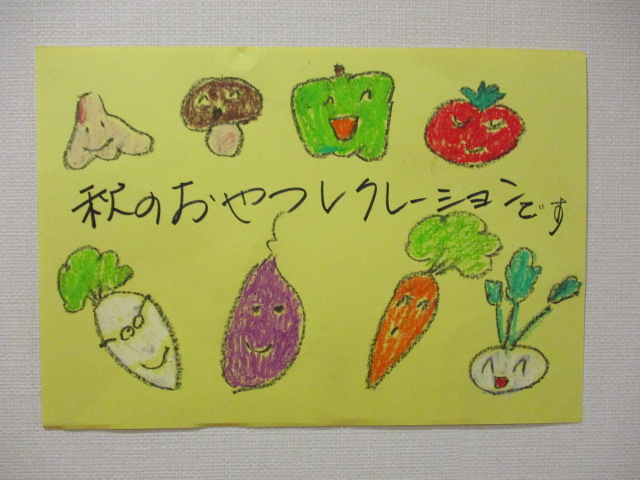 秋のおやつレクレーションです